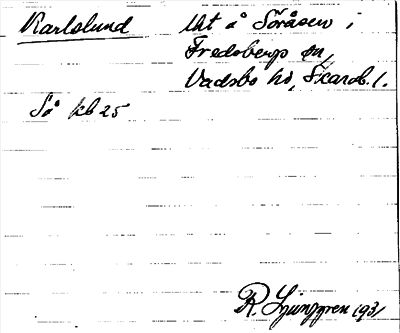 Karlslund Utj å Söråsen i
Fredsbergs sn,
Vadsbo hd, Skarab. l.
Sö kb 25
R. Ljunggren 1931